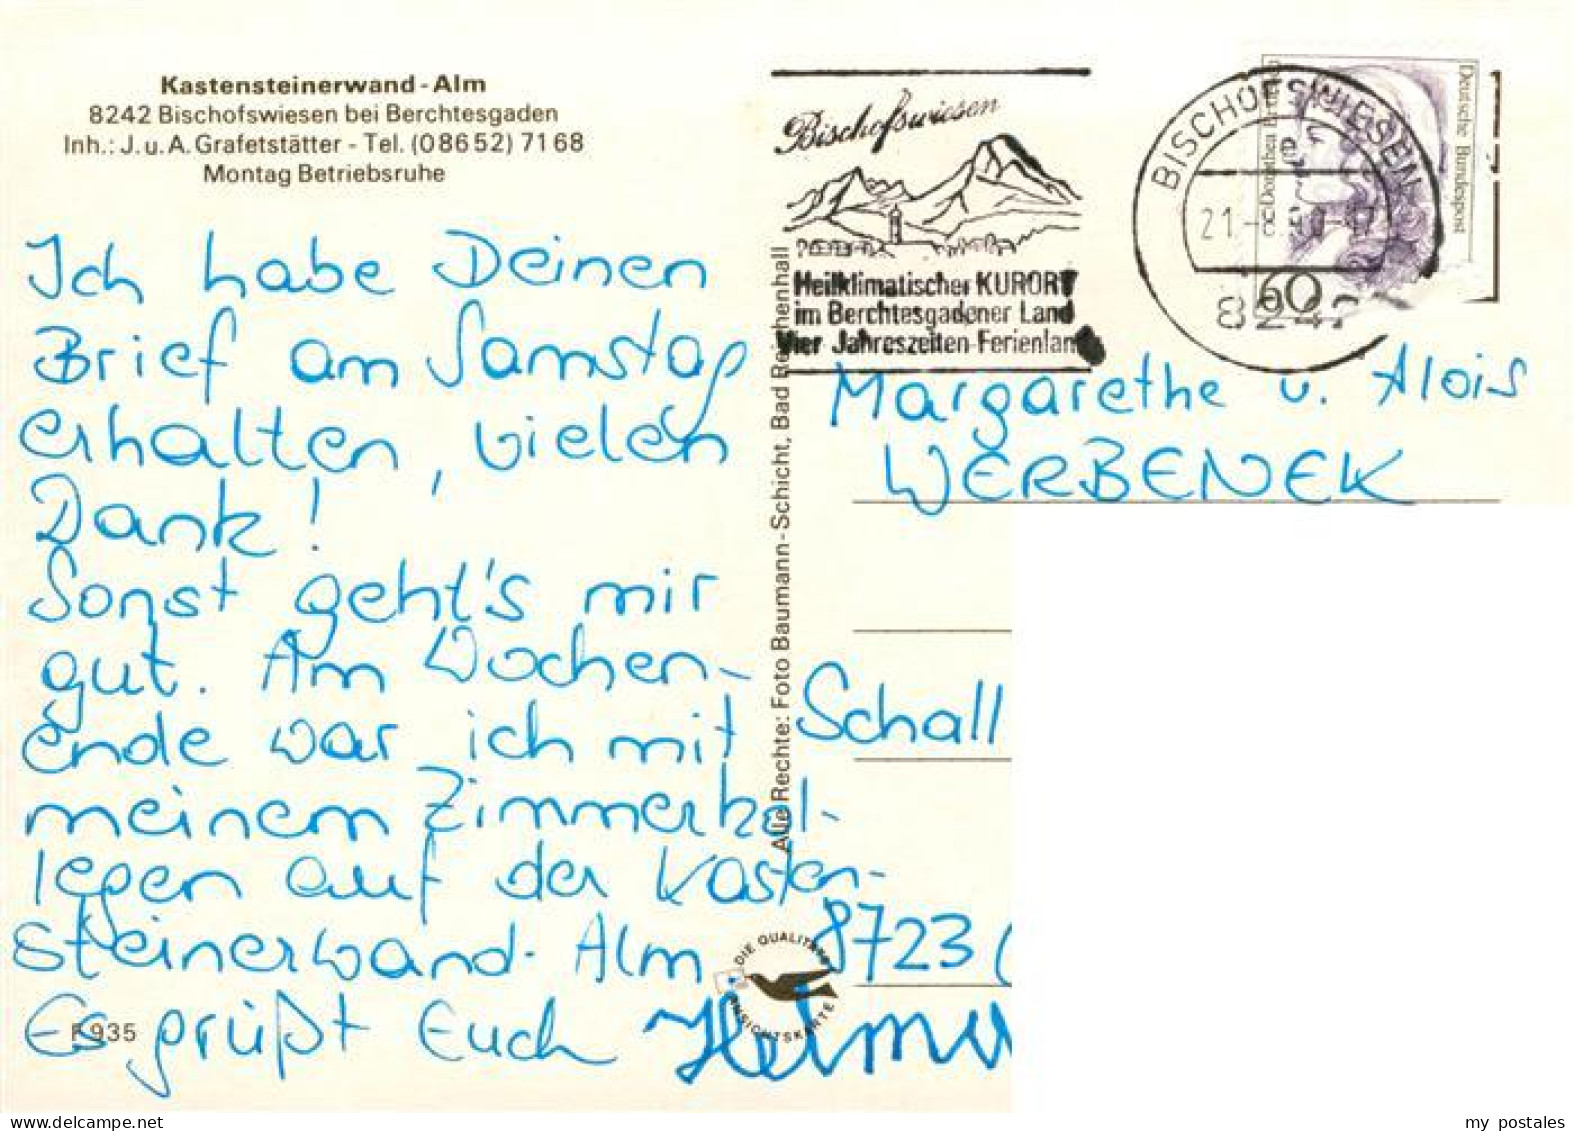 Kastensteinerwand-Alm
8242 Bischofswiesen bei Berchtesgaden
Inh.: J. u. A. Grafetstätter - Tel. (08652) 7168
Montag Betriebsruhe
Ich habe Deinen
Brief am Samstag
erhalten, vielen
Dank!
Sonst geht's mir
gut. Am Wochen-
ende war ich mit
meinem Zimmerkol-
legen auf der Kasten-
steinerwand-Alm.
Es grüßt Euch
F 935
Alle Rechte: Foto Baumann-Schicht, Bad Reichenhall
DIE QUALITÄTS
ANSICHTSKARTE
Bischofswiesen
Heilklimatischer KURORT
im Berchtesgadener Land
Vier Jahreszeiten-Ferienland
BISCHOFSWIESEN
21.
8242
Deutsche Bundespost
Dorothea
60
Margarethe u. Alois
WERBENEK
Schall
8723
my postales